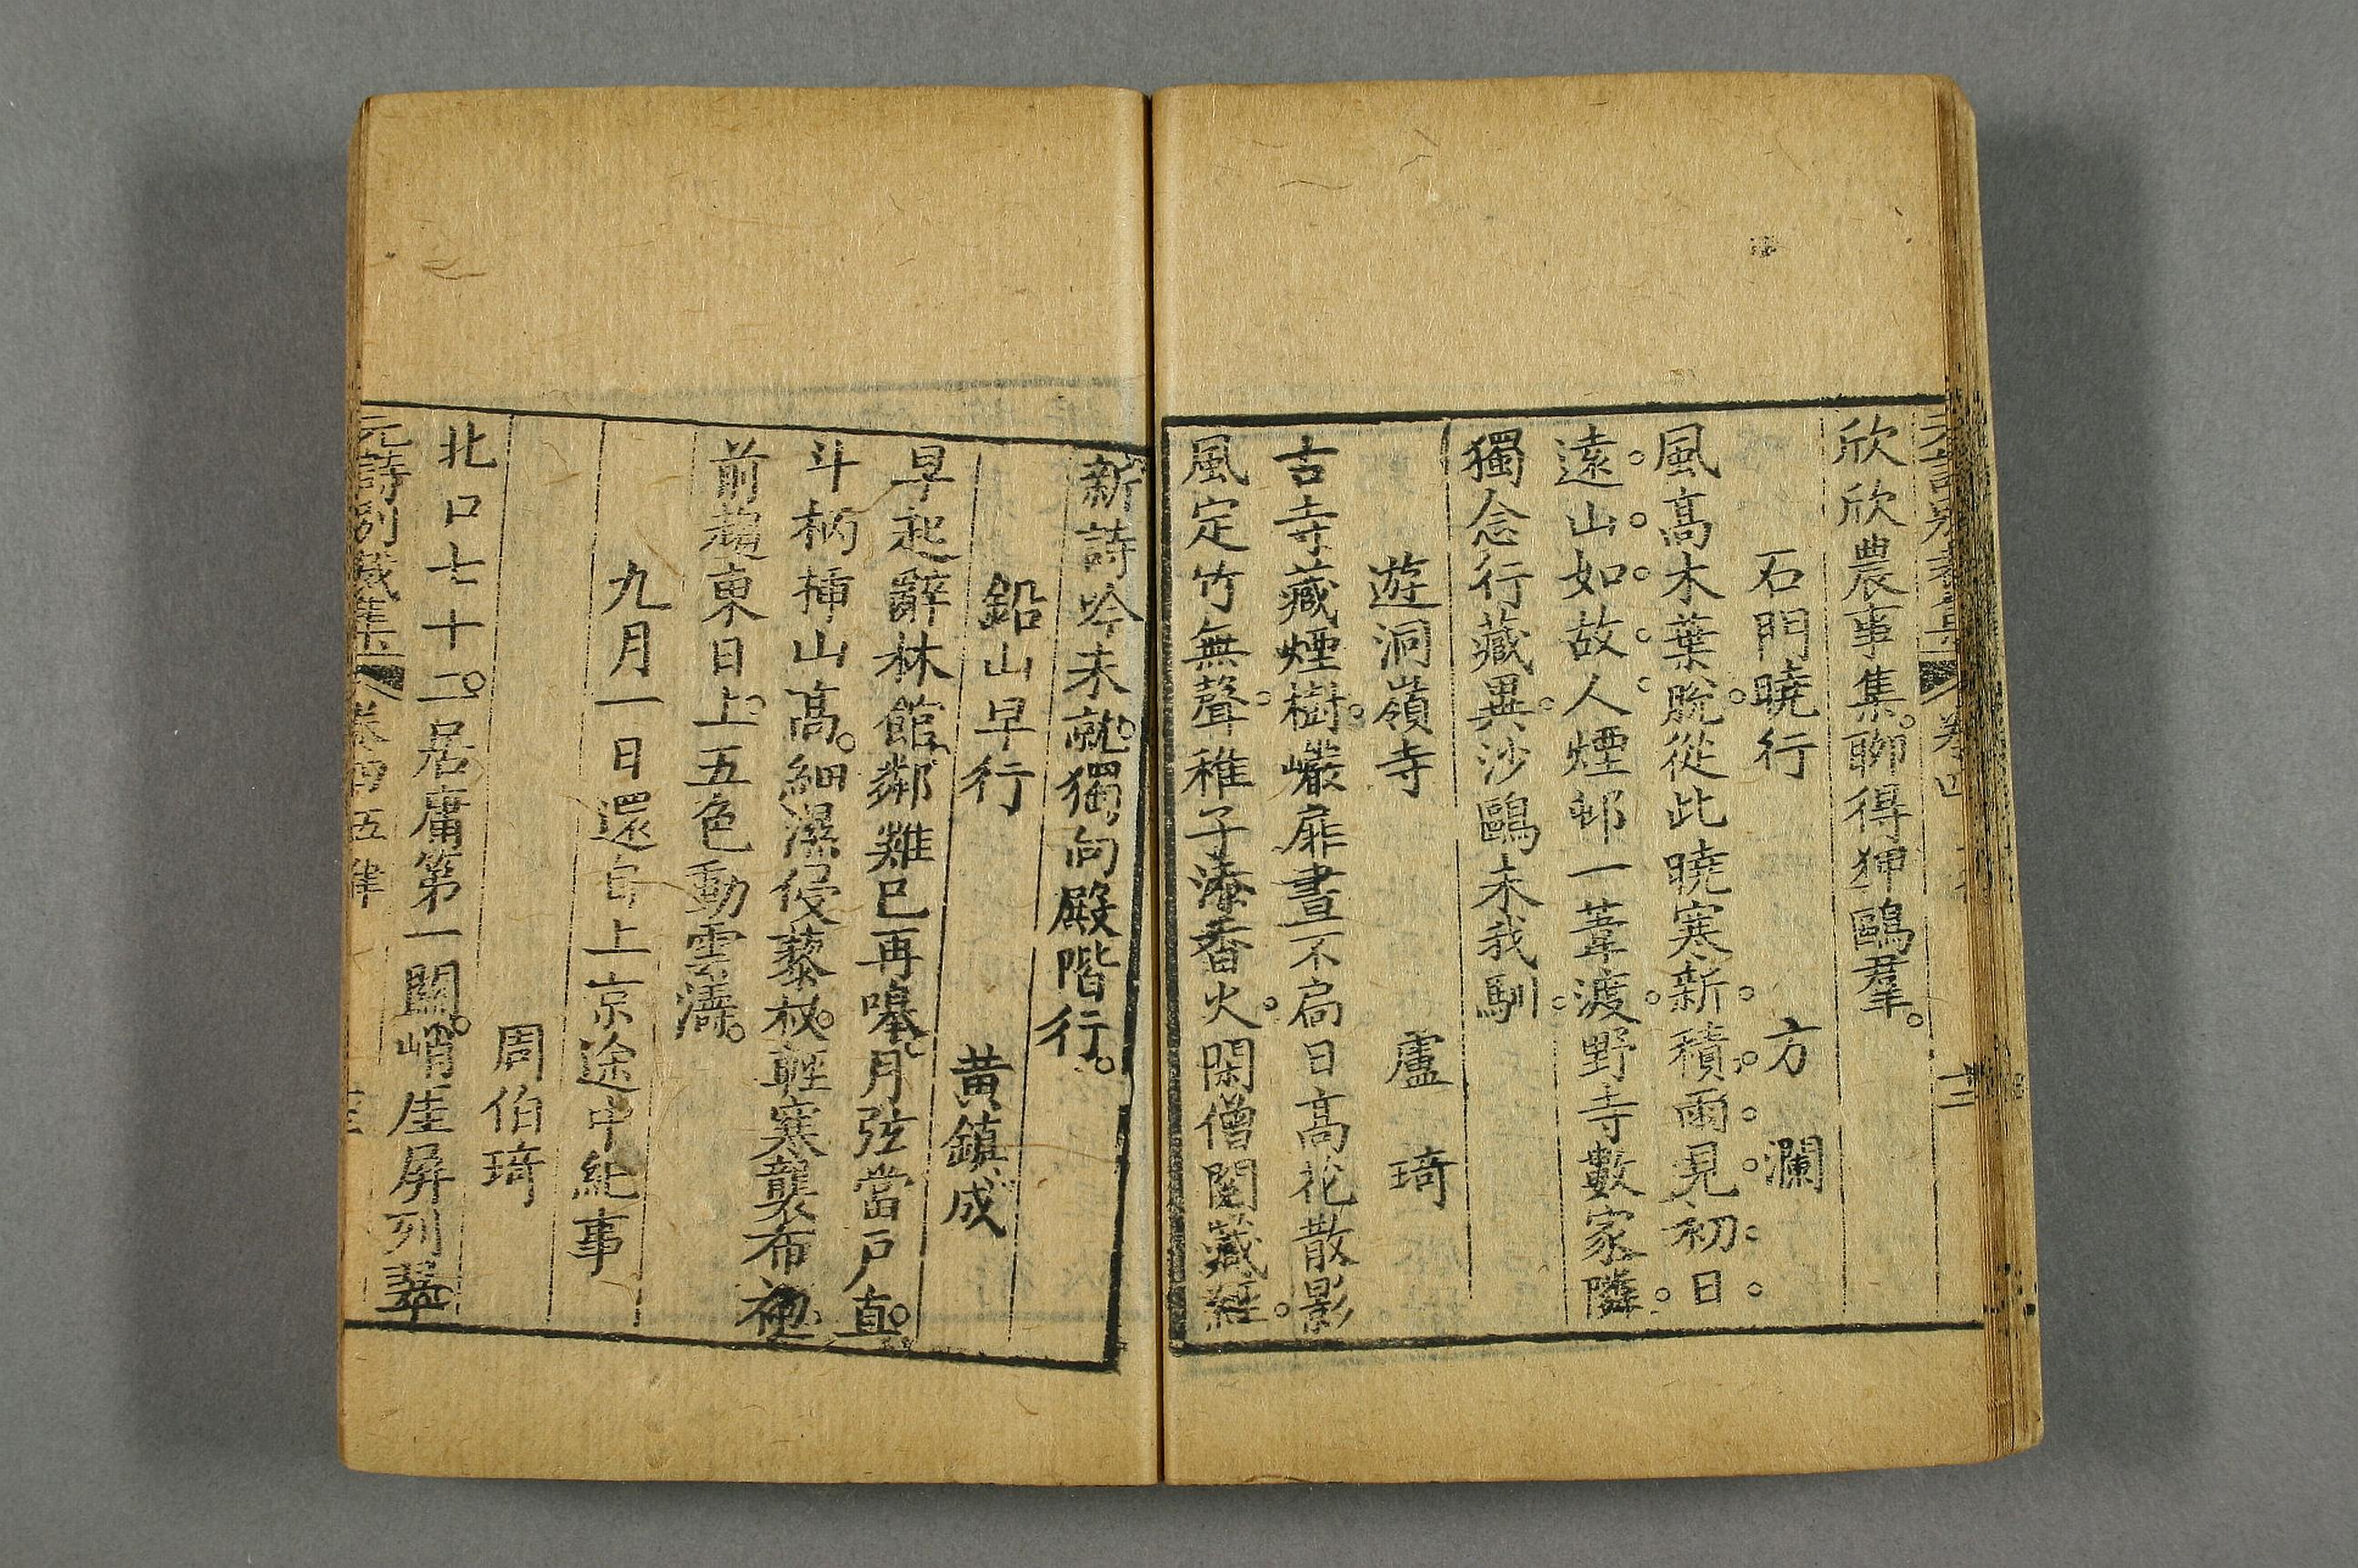 欣欣農事集。聊得狎鷗羣。
石門曉行 方瀾
風高木葉脫。從此曉寒新。積雨見初日。
遠山如故人。煙邨一葦渡。野寺數家隣。
獨念行藏異。沙鷗未我馴。
遊洞嶺寺 盧琦
古寺藏煙樹。巖扉晝不扃。日高花散影。
風定竹無聲。稚子添香火。閑僧閱藏經。
新詩吟未就。獨向殿階行。
鉛山早行 黃鎮成
早起辭林館。鄰雞已再嘷。月弦當戶直。
斗柄插山高。細濕侵藜杖。輕寒襲布袍。
前趨東日上。五色動雲濤。
九月一日還自上京途中紀事
周伯琦
北口七十二。居庸第一關。峭崖屏列翠
元詩別裁集 卷四 五律